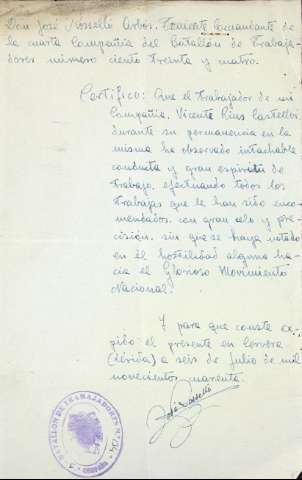 Don José Rosselló Arbós, Teniente Comandante de
la cuarta Compañia del Batallón de Trabaja-
dores número ciento treinta y cuatro.
Certifico: Que el trabajador de mi
Compañia, Vicente Rius Castellví
durante su permanencia en la
misma ha observado intachable
conducta y gran espíritu de
trabajo, efectuando todos los
trabajos que le han sido enco-
mendados, con gran celo y pre-
cisión, sin que se haya notado
en él hostilidad alguna ha-
cia el Glorioso Movimiento
Nacional.
Y para que conste ex-
pido el presente en Cervera
(Lérida) a seis de Julio de mil
novecientos cuarenta.
José Rosselló
BATALLON DE TRABAJADORES Nº 134